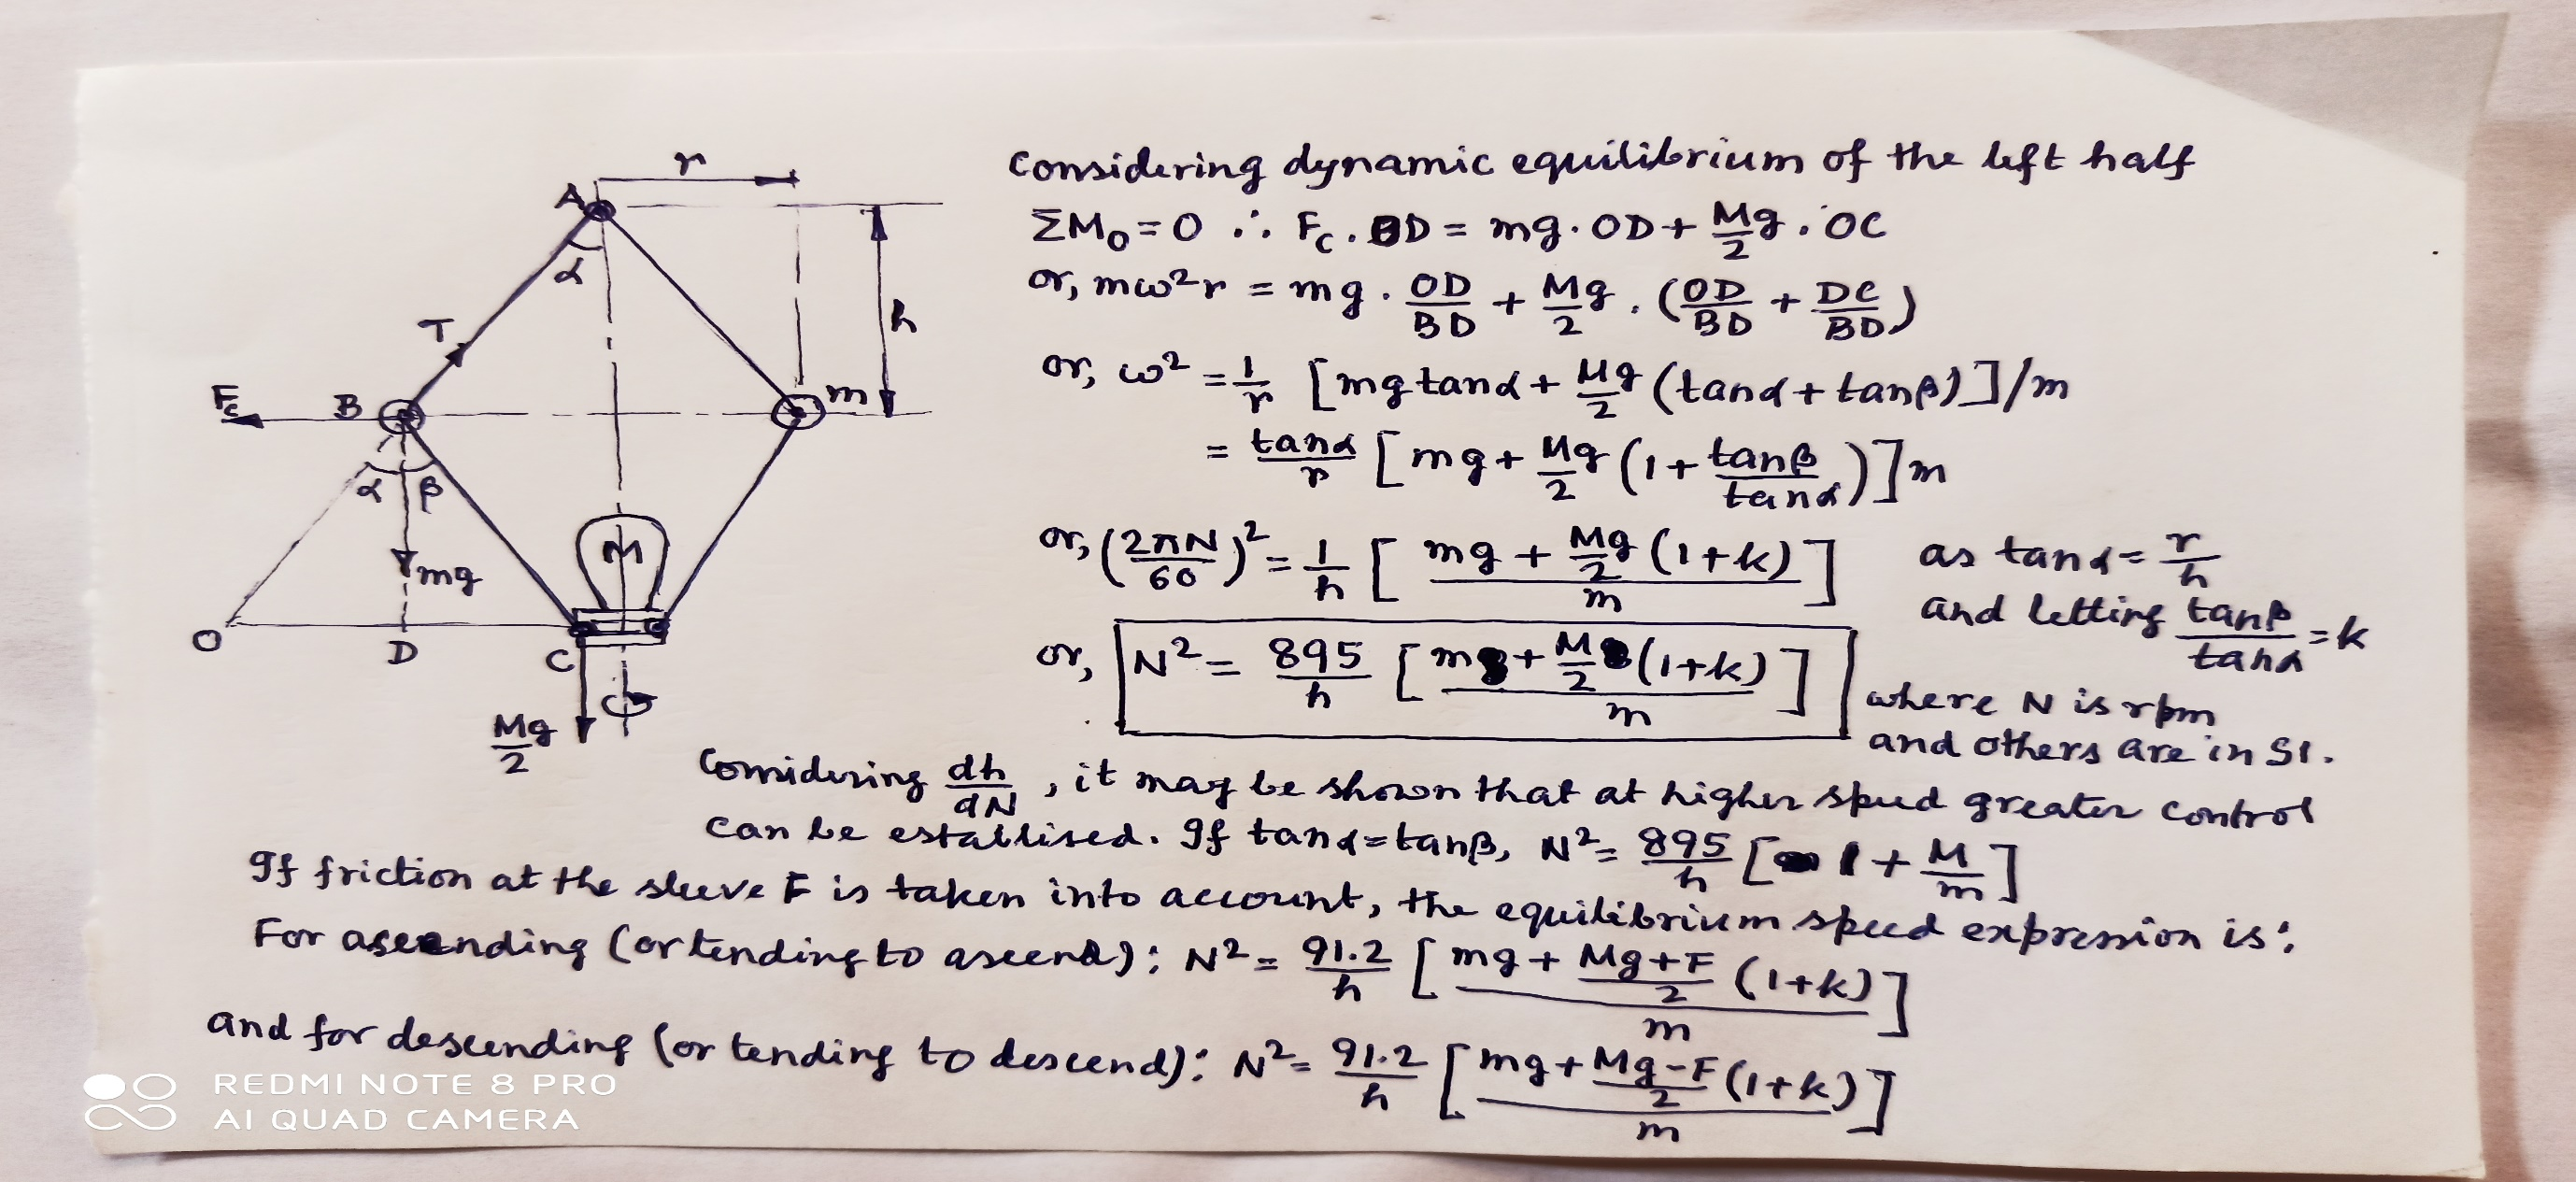 r
A
α
h
T
Fc
B
m
α
β
mg
M
O
D
C
Mg/2
Considering dynamic equilibrium of the left half
ΣM₀ = 0 ∴ Fc . BD = mg . OD + Mg/2 . OC
or, mω²r = mg . OD/BD + Mg/2 . (OD/BD + DC/BD)
or, ω² = 1/r [mg tanα + Mg/2 (tanα + tanβ)]/m
= tanα/r [mg + Mg/2 (1 + tanβ/tanα)]m
or, (2πN/60)² = 1/h [(mg + Mg/2 (1+k))/m] as tanα = r/h
and letting tanβ/tanα = k
or, N² = 895/h [(m + M/2 (1+k))/m]
where N is rpm
and others are in SI.
Considering dh/dN, it may be shown that at higher speed greater control
can be establised. If tanα = tanβ, N² = 895/h [1 + M/m]
If friction at the sleeve F is taken into account, the equilibrium speed expression is:
For ascending (or tending to ascend): N² = 91.2/h [(mg + (Mg+F)/2 (1+k))/m]
and for descending (or tending to descend): N² = 91.2/h [(mg + (Mg-F)/2 (1+k))/m]
REDMI NOTE 8 PRO
AI QUAD CAMERA